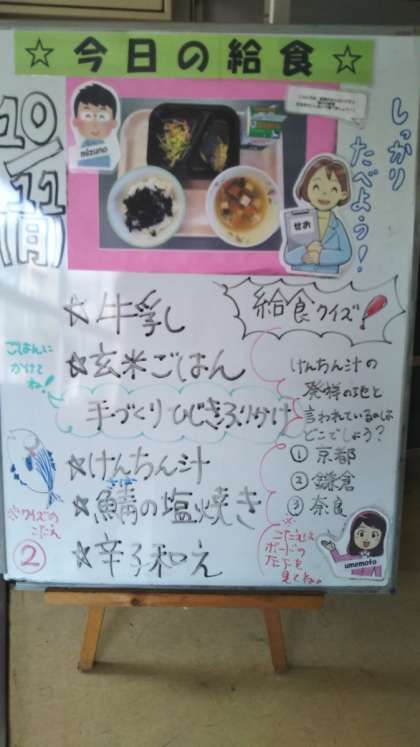 ☆今日の給食☆
10/11(月)
mizuno
せお
しっかり
たべよう!
☆牛乳
☆玄米ごはん
ごはんに
かけて
ね!
手づくりひじきふりかけ
☆けんちん汁
さば
☆鯖の塩焼き
☆辛子和え
給食クイズ!
けんちん汁の
発祥の地と
言われているのは
どこでしょう?
①京都
②鎌倉
③奈良
※
こたえは
ボードの
左下を
見てね。
umemoto
※クイズの
こたえ
②